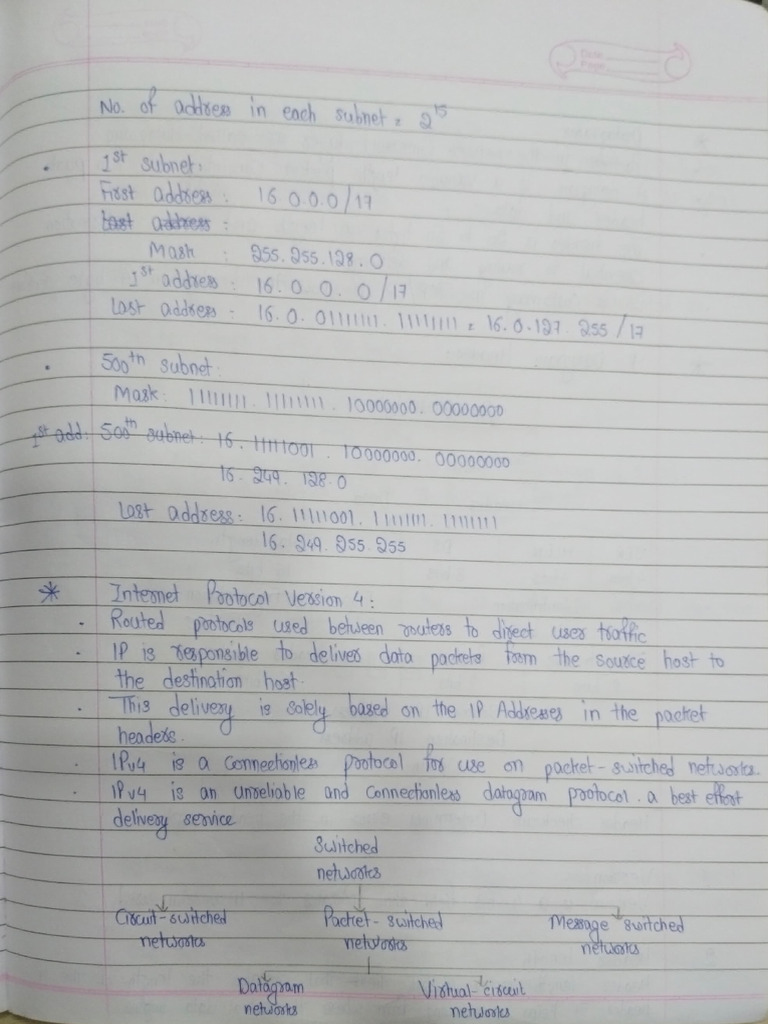 Date
Page
No. of address in each subnet = 2^15
1st subnet:
First address : 16.0.0.0/17
Last address :
Mask : 255.255.128.0
1st address : 16. 0 0. 0/17
Last address : 16. 0. 01111111. 11111111 = 16.0.127. 255 /17
500th subnet:
Mask: 11111111. 11111111. 10000000. 00000000
1st add: 500th subnet: 16. 11111001 . 10000000. 00000000
16. 249. 128.0
Last address: 16. 11111001. 11111111. 11111111
16. 249. 255. 255
* Internet Protocol Version 4:
· Routed protocols used between routers to direct user traffic
· IP is responsible to deliver data packets from the source host to
the destination host.
· This delivery is solely based on the IP Addresses in the packet
headers.
· IPv4 is a connectionless protocol for use on packet-switched networks.
· IPv4 is an unreliable and connectionless datagram protocol. a best effort
delivery service
Switched
networks
Circuit-switched Packet-switched Message switched
networks networks networks
Datagram Virtual-circuit
networks networks